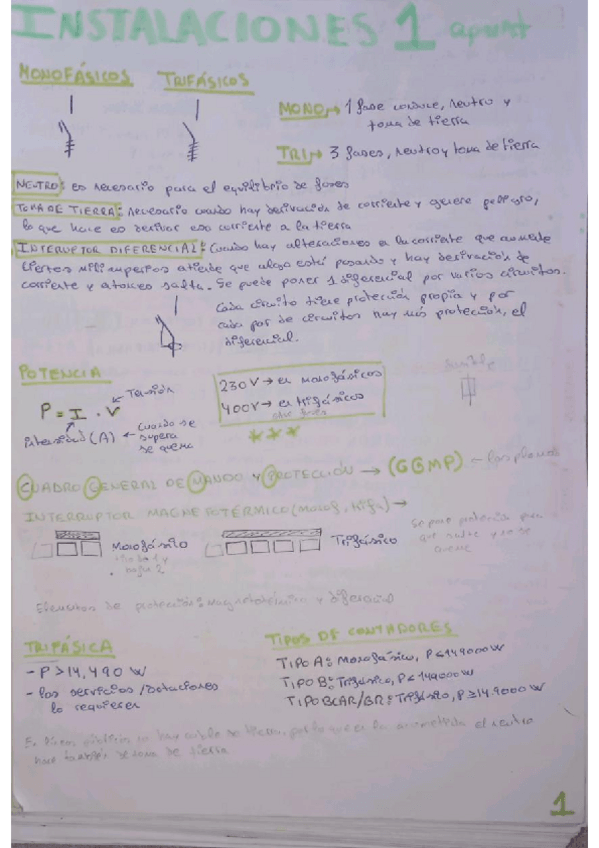 INSTALACIONES 1 apunt
MONOFÁSICOS TRIFÁSICOS
MONO → 1 fase conduce, neutro y
toma de tierra
TRI → 3 fases, neutro y toma de tierra
NEUTRO: es necesario para el equilibrio de fases
TOMA DE TIERRA: necesario cuando hay derivación de corriente y genere peligro,
lo que hace es derivar esa corriente a la tierra
INTERRUPTOR DIFERENCIAL: Cuando hay alteraciones a la corriente que aumente
ciertos miliamperios atiende que algo está pasando y hay derivación de
corriente y atonces salta. Se puede poner 1 diferencial por varios circuitos.
Cada circuito tiene protección propia y por
cada par de circuitos hay más protección, el
diferencial.
POTENCIA
Tensión
P = I · V
intensidad (A) ← cuando se
supera
se quema
230V → en monofásicos
400V → en trifásicos
entre fases
CUADRO GENERAL DE MANDO Y PROTECCIÓN → (CGMP)
INTERRUPTOR MAGNETOTÉRMICO (monof, trif) →
se pone protección para
que salte y no se
queme
Monofásico
Trifásico
Elementos de protección: magnetotérmico y diferencial
TRIFÁSICA
- P > 14,490 W
- los servicios/dotaciones
lo requieren
TIPOS DE CONTADORES
TIPO A: Monofásico, P ≤ 149000 W
TIPO B: Trifásico, P < 149000 W
TIPO BCAR/BR: Trifásico, P ≥ 14.9000 W
no hay cable de tierra, por lo que en la acometida el neutro
hace también de toma de tierra
1